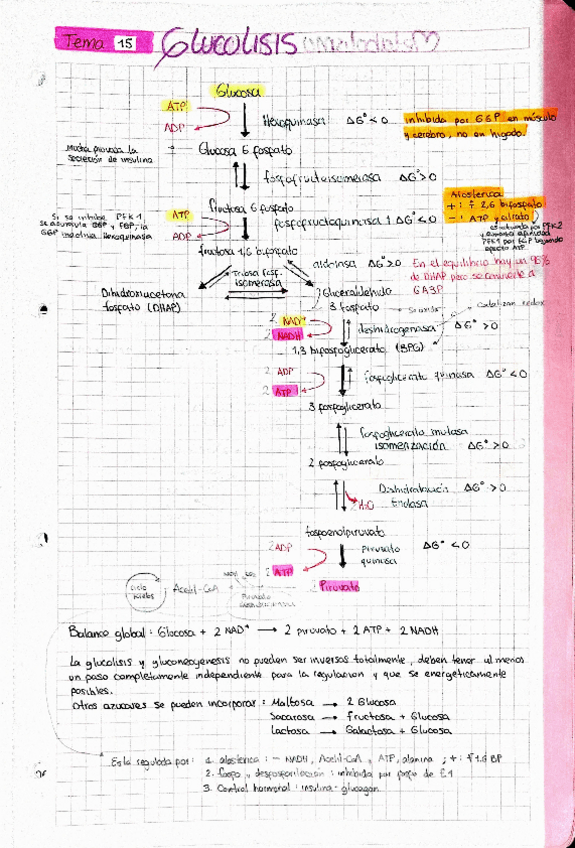 Tema 15 GLUCOLISIS
Glucosa
ATP
ADP
Hexoquinasa ΔG° < 0
inhibida por G6P en músculo
y cerebro, no en hígado.
secreción de insulina
Glucosa 6 fosfato
fosfofructoisomerasa ΔG° > 0
Alosterica
+ : F 2,6 bifosfato
- : ATP y citrato
Si se inhibe PFK1
se acumula G6P y F6P, la
G6P inactiva Hexoquinasa
fructosa 6 fosfato
ATP
ADP
fosfofructoquinasa 1 ΔG° < 0
fructosa 1,6 bifosfato
aldolasa ΔG° > 0
En el equilibrio hay un 96%
de DHAP pero se convierte a
GA3P
Triosa fosf.
isomerasa
Dihidroxiacetona
fosfato (DHAP)
Gliceraldehido
3 fosfato
2 NAD+
2 NADH
deshidrogenasa ΔG° > 0
Catalizan redox
1,3 bifosfoglicerato (BPG)
2 ADP
2 ATP
fosfoglicerato quinasa ΔG° < 0
3 fosfoglicerato
fosfoglicerato mutasa
isomerización ΔG° > 0
2 fosfoglicerato
H2O
Deshidratación ΔG° > 0
Enolasa
fosfoenolpiruvato
2 ADP
2 ATP
piruvato
quinasa
ΔG° < 0
2 Piruvato
Acetil-CoA
ciclo
Krebs
Balance global : Glucosa + 2 NAD+ → 2 piruvato + 2 ATP + 2 NADH
La glucolisis y gluconeogenesis no pueden ser inversas totalmente, deben tener al menos
un paso completamente independiente para la regulacion y que se energeticamente
posibles.
Otros azucares se pueden incorporar : Maltosa → 2 Glucosa
Sacarosa → fructosa + Glucosa
Lactosa → Galactosa + Glucosa
Esta regulada por : 1. alosterica : - NADH, Acetil-CoA, ATP, alanina ; + : F 1,6 BP
2. fosfo y desfosforilación : inhibida por
3. Control hormonal : insulina - glucagon